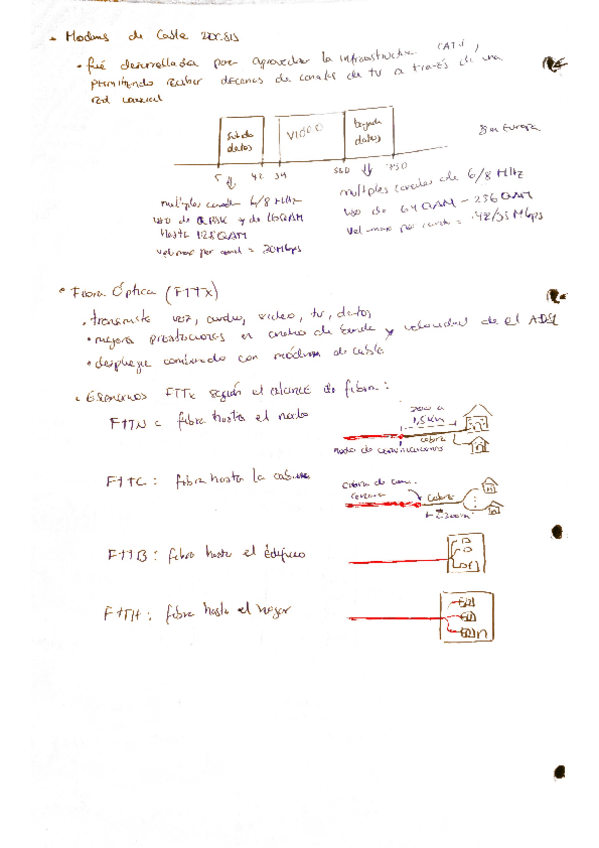 - Modems de Cable DOCSIS
• fué desarrollada por aprovechar la infraestructura (CATV),
permitiendo recibir decenas de canales de tv a través de una
red coaxial
Subida datos
VIDEO
Bajada datos
8 en Europa
5 42 54 550 750
multiples canales 6/8 MHz
uso de QPSK y de 16QAM
hasta 128QAM
vel. max por canal = 30Mbps
multiples canales de 6/8 MHz
uso de 64QAM - 256QAM
vel max por canal = 42/55 Mbps
• Fibra Óptica (FTTx)
• transmite voz, audio, video, tv, datos
• mejora prestaciones en ancho de banda y velocidad de el ADSL
• despliegue combinado con módems de cable
• Escenarios FTTx según el alcance de fibra:
FTTN = fibra hasta el nodo
1,5Km
cobre
nodo de comunicaciones
FTTC: fibra hasta la cabina
cercana
cobre
300m
FTTB: fibra hasta el Edificio
FTTH: fibra hasta el hogar